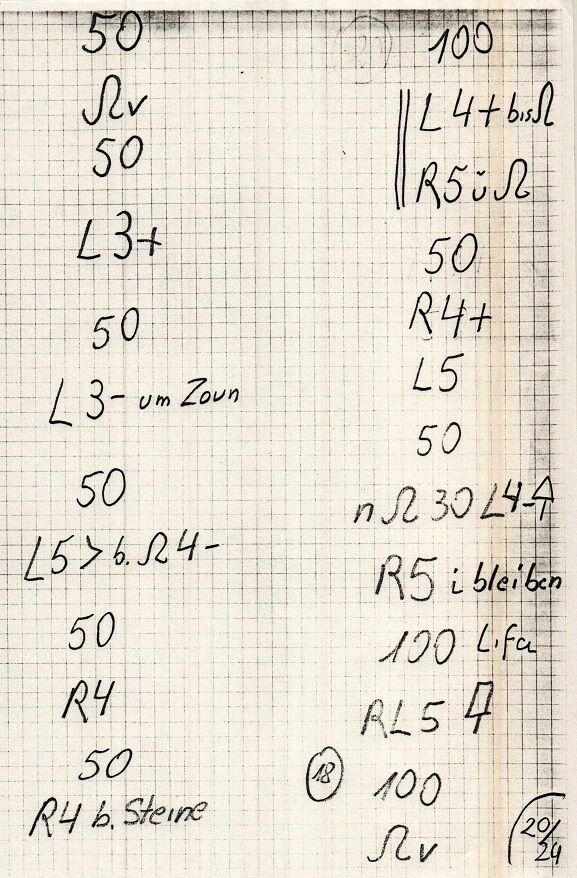 50
Ωv
50
L3+
50
L3- um Zaun
50
L5> b. Ω4-
50
R4
50
R4 b. Steine
100
L4+ bis Ω
R5 ü Ω
50
R4+
L5
50
n Ω 30 L4-
R5 i bleiben
100 L.fa
RL5
18 100
Ωv
20/24